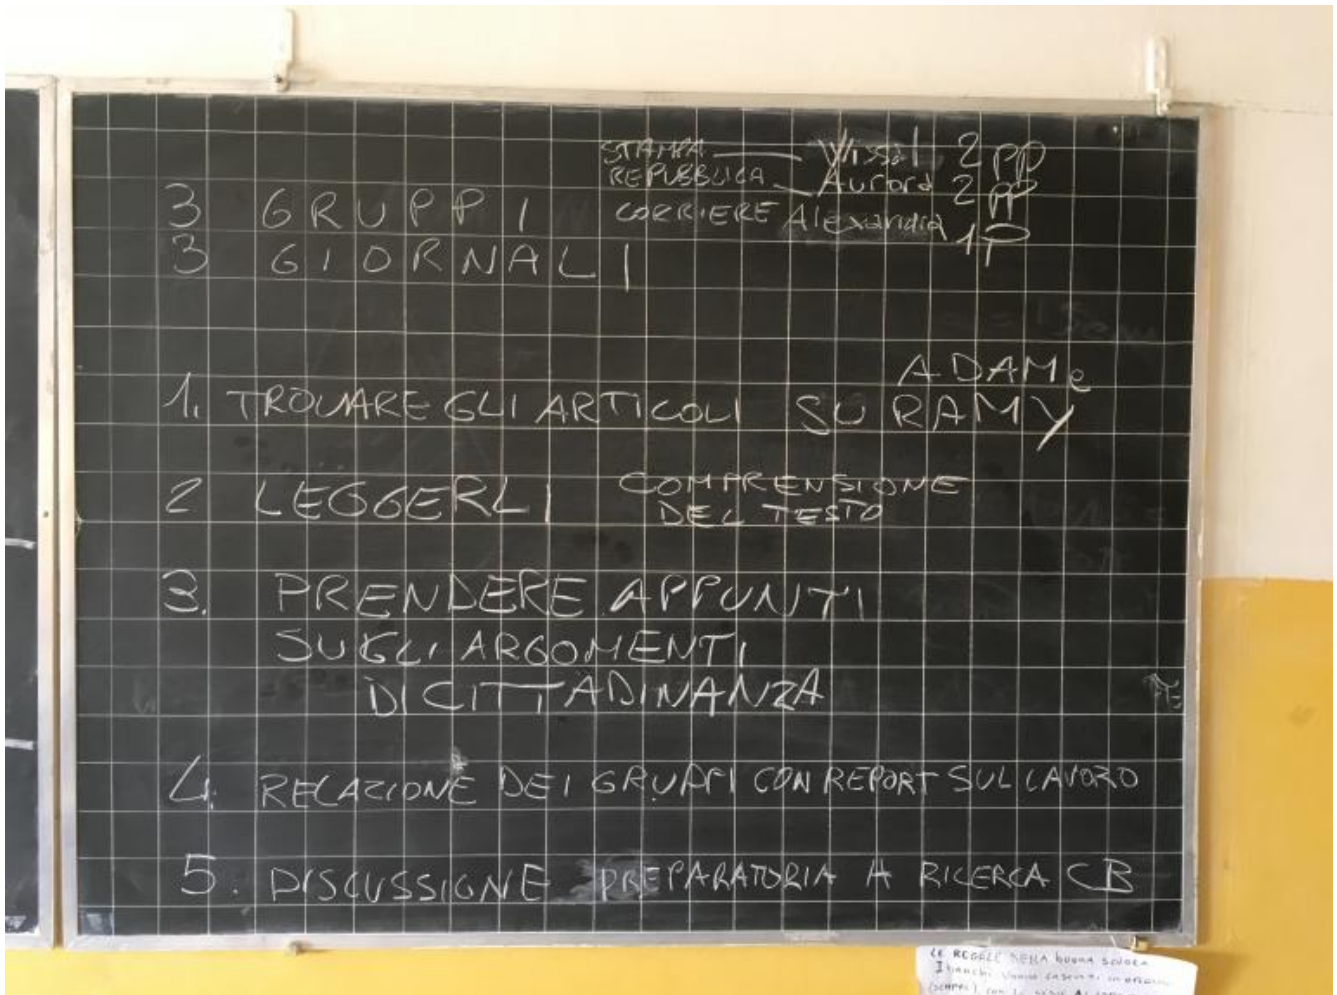 STAMPA Wissal 2 PP
REPUBBLICA Aurora 2 PP
3 GRUPPI CORRIERE Alexandra 1 P
3 GIORNALI
ADAM e
1. TROVARE GLI ARTICOLI SU RAMY
2 LEGGERLI COMPRENSIONE
DEL TESTO
3. PRENDERE APPUNTI
SUGLI ARGOMENTI
DI CITTADINANZA
4. RELAZIONE DEI GRUPPI CON REPORT SUL LAVORO
5. DISCUSSIONE PREPARATORIA A RICERCA CB
LE REGOLE DELLA buona scuola